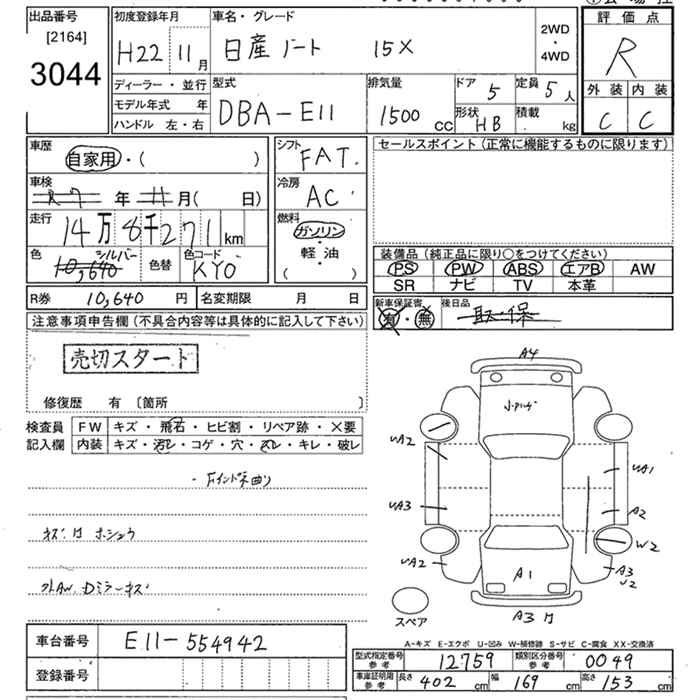 出品番号
[2164]
3044
初度登録年月
H22 11月
車名・グレード
日産 ノート 15X
2WD
・
4WD
評価点
R
外装 内装
C C
ディーラー・並行
モデル年式 年
ハンドル 左・右
型式
DBA-E11
排気量
1500 cc
ドア 5
形状 HB
定員 5人
積載 kg
車歴
自家用・( )
車検
R7 年 11月( 日)
走行
14万8千271km
色
シルバー
10,640
色替
色コード
KYO
シフト
FAT
冷房
AC
燃料
ガソリン
・
軽・油
( )
セールスポイント(正常に機能するものに限ります)
装備品(純正品に限り○をつけてください)
PS PW ABS エアB AW
SR ナビ TV 本革
R券 10,640 円 名変期限 月 日
新車保証書
有・無
後日品
取・保
注意事項申告欄(不具合内容等は具体的に記入して下さい)
売切スタート
修復歴 有〔箇所 〕
検査員
記入欄
FW キズ・飛石・ヒビ割・リペア跡・×要
内装 キズ・汚レ・コゲ・穴・スレ・キレ・破レ
A4
UA2
UA3
UA2
UA1
A2
W2
A3
U2
A1
A3
スペア
A-キズ E-エクボ U-凹み W-補修跡 S-サビ C-腐食 XX-交換済
車台番号 E11-554942
登録番号
型式指定番号
参考
12759
類別区分番号
参考
0049
車庫証明用
参考
長さ 402 cm 幅 169 cm 高さ 153 cm